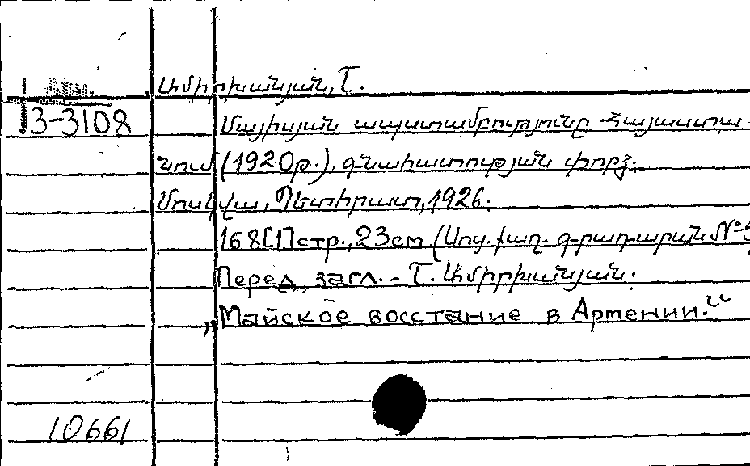 Арм.
Ամիրխանյան, Տ.
3-3108
Մայիսյան ապստամբությունը Հայաստա-
նում (1920թ.), գնահատության փորձ.
Մոսկվա, Պետհրատ, 1926.
168[1] стр., 23 см (Սոց. քաղ. գրադարան №
Перед загл. - Տ. Ամիրխանյան.
„Майское восстание в Армении.“
10661